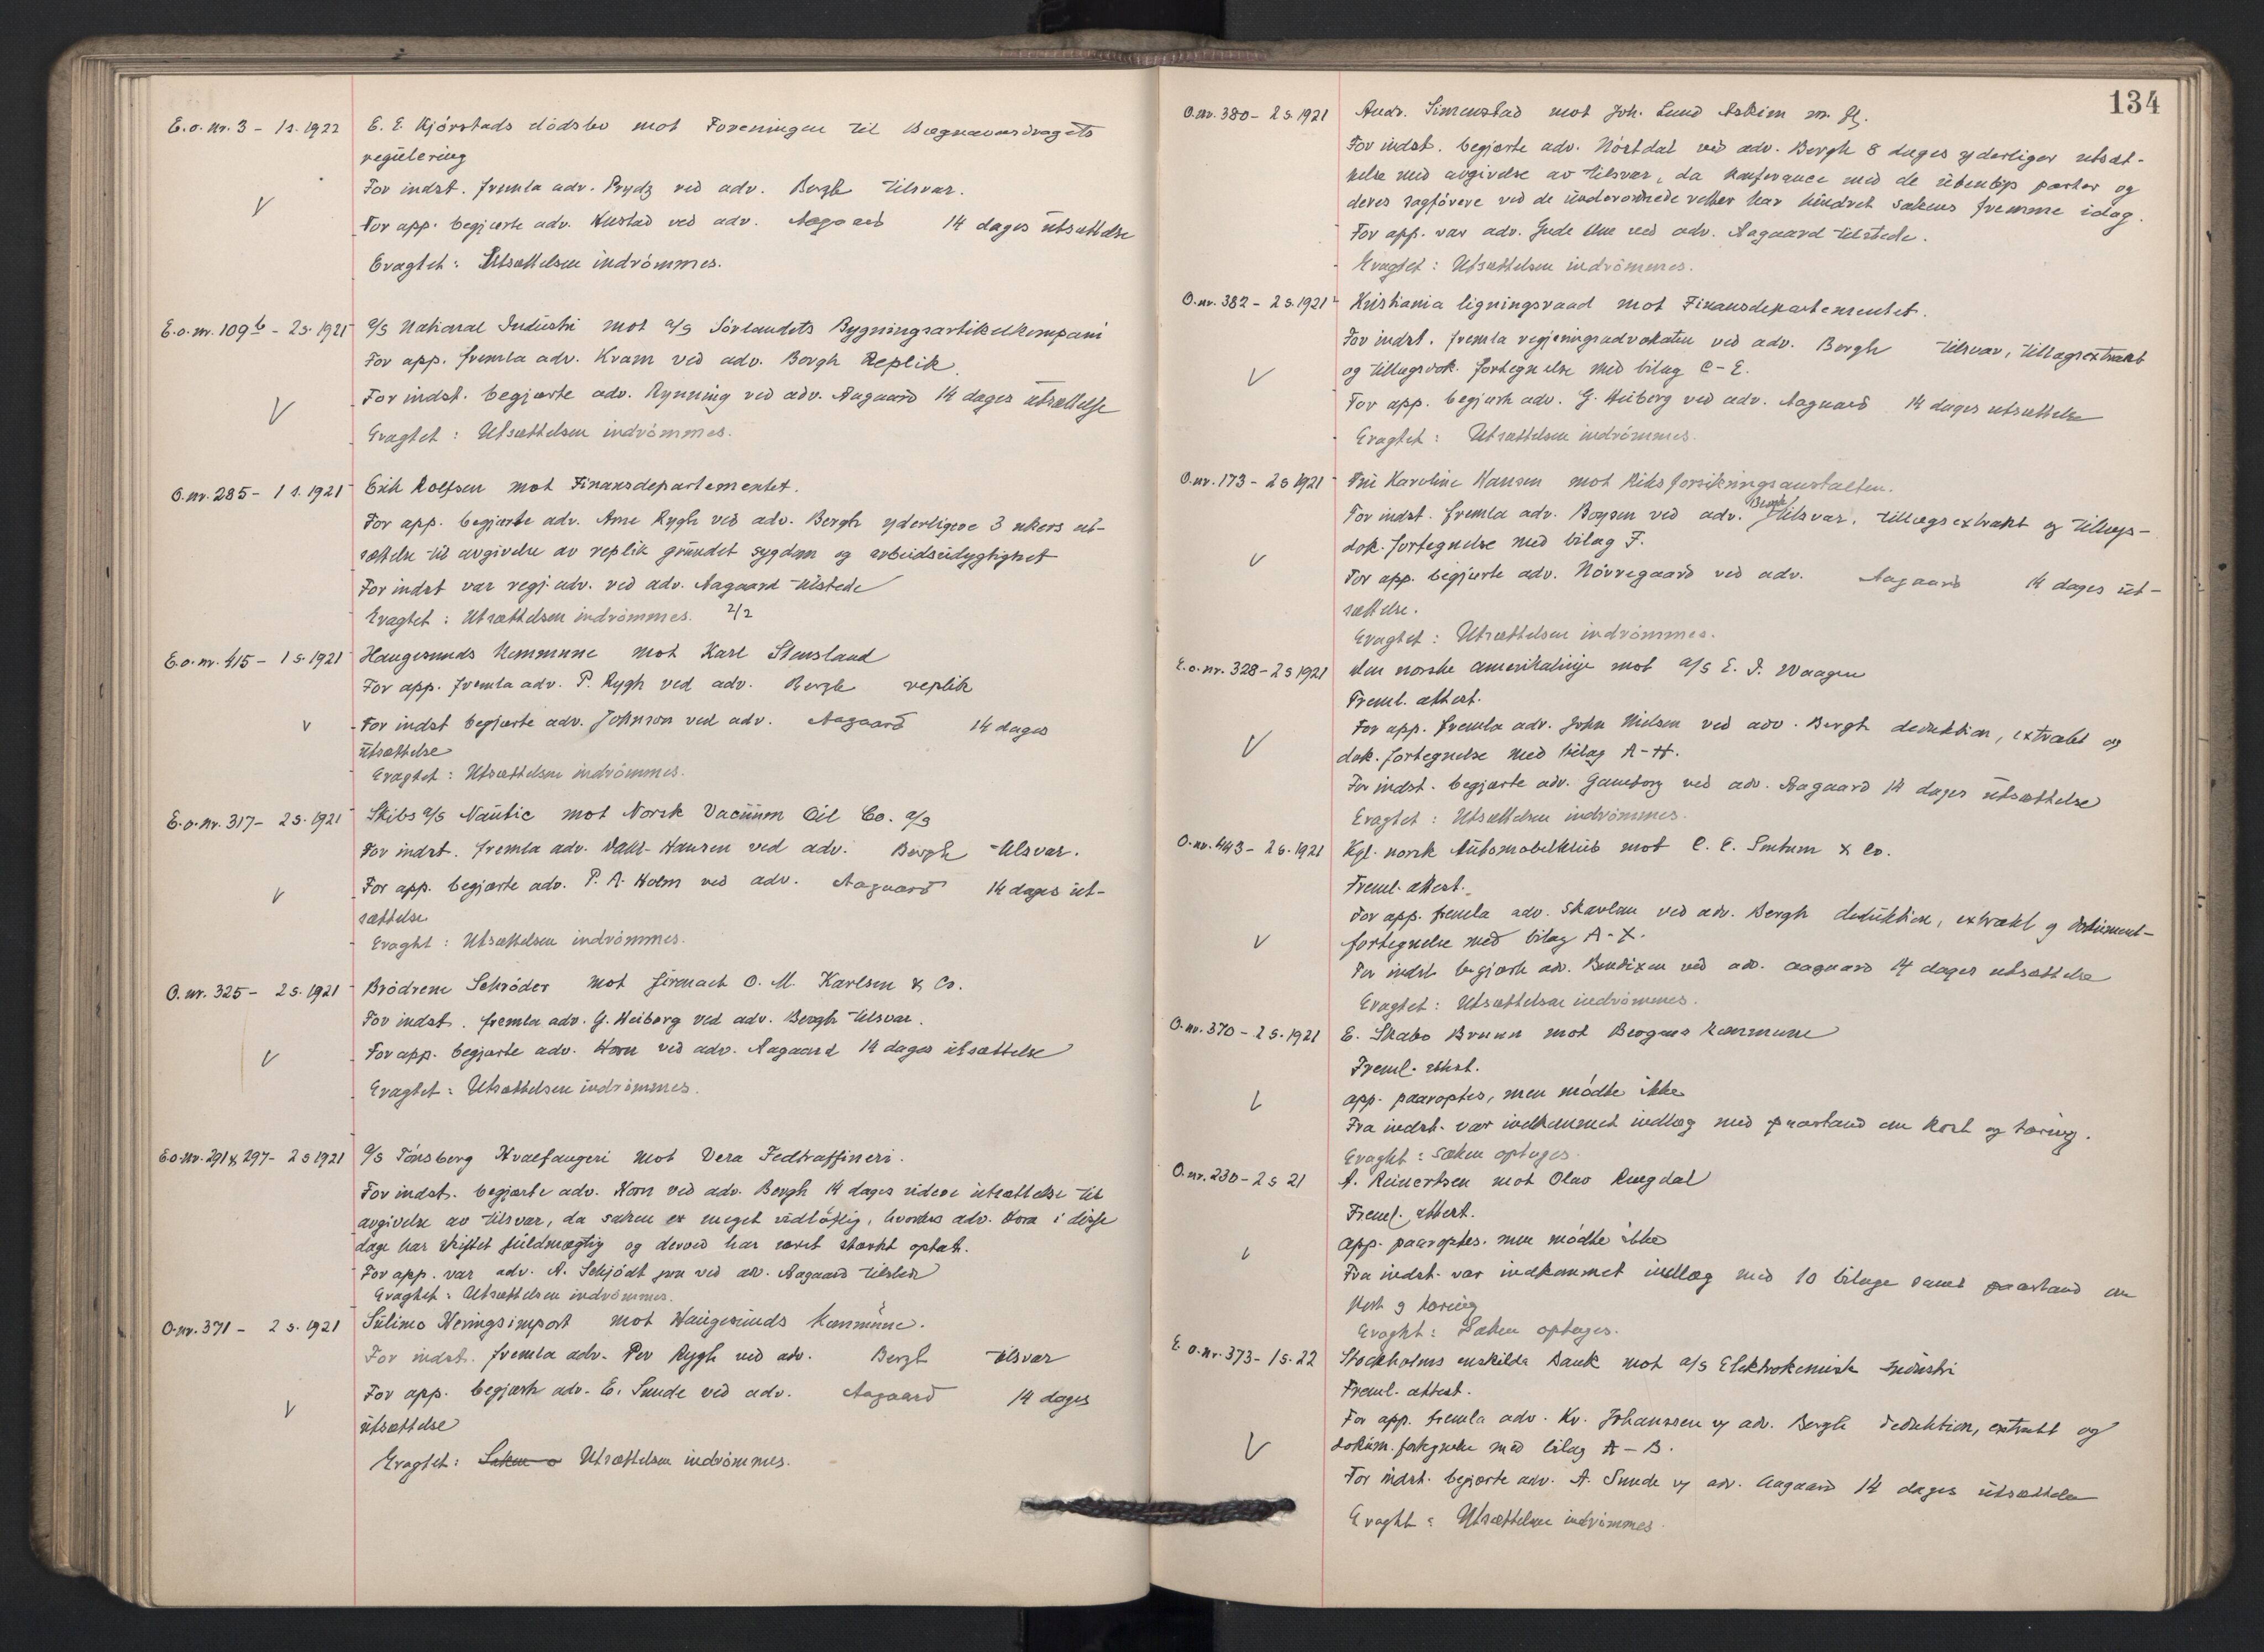 E.o.nr. 3 - 1 s. 1922 E. E. Kjörstads dödsbo mot Foreningen til Bægnavasdragets
regulering
For indst. fremla adv. Prydz ved adv. Bergh tilsvar.
V For app. begjærte adv. Hustad ved adv. Aagaard 14 dages utsættelse
Eragtet: Utsættelsen indrömmes.
E.o.nr. 109b - 2 s. 1921 a/s National Industri mot a/s Sörlandets Bygningsartikelkompani
For app. fremla adv. Kram ved adv. Bergh Replik.
V For indst. begjærte adv. Rynning ved adv. Aagaard 14 dages utsættelse
Eragtet: Utsættelsen indrömmes.
O.nr. 285 - 1 s. 1921 Erik Rolfsen mot Finansdepartementet.
For app. begjærte adv. Arne Rygh ved adv. Bergh yderligere 3 ukers ut-
sættelse til avgivelse av replik grundet sygdom og arbeidsudygtighet
For indst var regj. adv. ved adv. Aagaard tilstede
Eragtet: Utsættelsen indrömmes. 2/2
E.o.nr. 415 - 1 s. 1921 Haugesunds Kommune mot Karl Stensland
For app. fremla adv. P. Rygh ved adv. Bergh replik
V For indst begjærte adv. Johnson ved adv. Aagaard 14 dages
utsættelse
Eragtet: Utsættelsen indrömmes.
E.o.nr. 317 - 2 s. 1921 Skibs a/s Nautic mot Norsk Vacuum Oil Co. a/s
For indst. fremla adv. Dahl-Hansen ved adv. Bergh tilsvar.
V For app. begjærte adv. P. A. Holm ved adv. Aagaard 14 dages ut-
sættelse
Eragtet: Utsættelsen indrömmes.
O.nr. 325 - 2 s. 1921 Brödrene Schröder mot firmaet O. M. Karlsen & Co.
For indst. fremla adv. G. Heiberg ved adv. Bergh tilsvar.
V For app. begjærte adv. Horn ved adv. Aagaard 14 dages utsættelse
Eragtet: Utsættelsen indrömmes.
E.o.nr. 291 & 297 - 2 s 1921 a/s Tönsberg Hvalfangeri mot Vera Fedtraffineri.
For indst. begjærte adv. Horn ved adv. Bergh 14 dages videre utsættelse til
avgivelse av tilsvar, da saken er meget vidlöftig, hvorhos adv. Horn i disse
dage har skiftet fuldmægtig og derved har været stærkt optat.
For app. var adv. A. Schjödt jun ved adv. Aagaard tilstede
Eragtet: Utsættelsen indrömmes.
O.nr. 371 - 2 s. 1921 Sulimo Heringsimport mot Haugesunds kommune.
For indst. fremla adv. Per Rygh ved adv. Bergh tilsvar
V For app. begjærte adv. E. Sunde ved adv. Aagaard 14 dages
utsættelse
Eragtet: Saken o Utsættelsen indrömmes.
134
O.nr. 380 - 2 s. 1921 Andr. Simenstad mot Joh. Lund Askim m. fl.
For indst. begjærte adv. Nörtdal ved adv. Bergh 8 dages yderliger utsæt-
telse med avgivelse av tilsvar, da konferance med de ubenlöp parter og
deres sagförere ved de underordnede retter har hindret sakens fremme idag.
For app. var adv. Gude Aue ved adv. Aagaard tilstede.
Eragtet: Utsættelsen indrömmes.
O.nr. 382 - 2 s. 1921 Kristiania ligningsraad mot Finansdepartementet.
For indst. fremla regjeringsadvokaten ved adv. Bergh tilsvar, tillægsextrakt
V og tillægsdok. fortegnelse med bilag C-E.
For app. begjærte adv. G. Heiberg ved adv. Aagaard 14 dages utsættelse
Eragtet: Utsættelsen indrömmes.
O.nr. 173 - 2 s 1921 Fru Karoline Hansen mot Riksforsikringsanstalten.
For indst. fremla adv. Boysen ved adv. Bergh tilsvar, tillægsextrakt og tillægs-
V dok. fortegnelse med bilag F.
For app. begjærte adv. Nörregaard ved adv. Aagaard 14 dages ut-
sættelse.
Eragtet: Utsættelsen indrömmes.
E.o.nr. 328 - 2 s 1921 den norske amerikalinje mot a/s E. I. Waagen
Freml. attest.
For app. fremla adv. John Nielsen ved adv. Bergh deduktion, extrakt og
V dok. fortegnelse med bilag A-H.
For indst. begjærte adv. Gaubarg ved adv. Aagaard 14 dages utsættelse
Eragtet: Utsættelsen indrömmes.
O.nr. 443 - 2 s. 1921 Kgl. norsk Automobilklub mot C. E. Sontum & Co.
Freml. attest.
For app. fremla adv. Skavlan ved adv. Bergh deduktion, extrakt og dokument-
V fortegnelse med bilag A-X.
For indst begjærte adv. Bendixen ved adv. Aagaard 14 dages utsættelse
Eragtet: Utsættelsen indrömmes.
O.nr. 370 - 2 s. 1921 E. Skabo Bruun mot Bergens kommune
Freml. attest.
V app. paaroptes, men mödte ikke
Fra indst. var indkommet indlæg med paastand om kost og tæring.
Eragtet: Saken optages.
O.nr. 230 - 2 s 21 A. Reinertsen mot Olav Ringdal
Freml. attest.
V app. paaroptes. men mödte ikke
Fra indst. var indkommet indlæg med 10 bilage samt paastand om
kost og tæring
Eragtet: Saken optages.
E.o.nr. 373 - 1 s. 22 Stockholms enskilda Bank mot a/s Elektrokemisk Industri
Freml. attest.
For app. fremla adv. Kr. Johanssen v/ adv. Bergh deduktion, extrakt og
V dokum. fortegnelse med bilag A-B.
For indst. begjærte adv. A. Sunde v/ adv. Aagaard 14 dages utsættelse
Eragtet: Utsættelsen indrömmes.